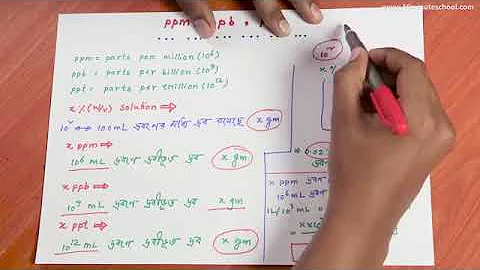 www.10minuteschool.com
ppm
ppb ,
ppm = parts per million (10⁶)
ppb = parts per billion (10⁹)
ppt = parts per trillion (10¹²)
x % (w/v) solution ⇒
100 mL দ্রবণের মধ্যে দ্রব রয়েছে x gm
x ppm ⇒
10⁶ mL দ্রবণে দ্রবীভূত দ্রব x gm
x ppb ⇒
10⁹ mL দ্রবণে দ্রবীভূত দ্রব x gm
x ppt ⇒
10¹² mL দ্রবণে দ্রবীভূত দ্রব x gm
6.02
x ppm
10⁶ mL